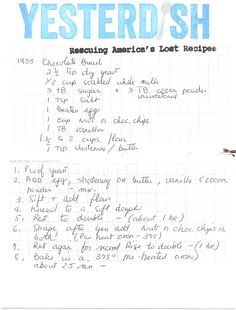 YESTERDISH
Rescuing America's Lost Recipes
1935 Chocolate Bread
2 ½ tsp dry yeast
½ cup scalded whole milk
3 TB sugar + 3 TB cocoa powder
unsweetened
1 tsp salt
1 Beaten egg
1 cup nuts or choc. chips
1 TB vanilla
1 ½ to 2 cups flour
1 tsp shortening / butter
1. Proof yeast
2. ADD egg, shortening or butter, vanilla & cocoa
powder - mix.
3. Sift + add flour
4. Knead to a soft dough
5. Rest to double - (about 1 hr)
6. Shape after you add nuts or choc. chips or
both! - (Pre heat oven - 375)
7. Rest again for second Rise to double - (1 hr)
8. Bake in a 375° pre heated oven
about 25 min -